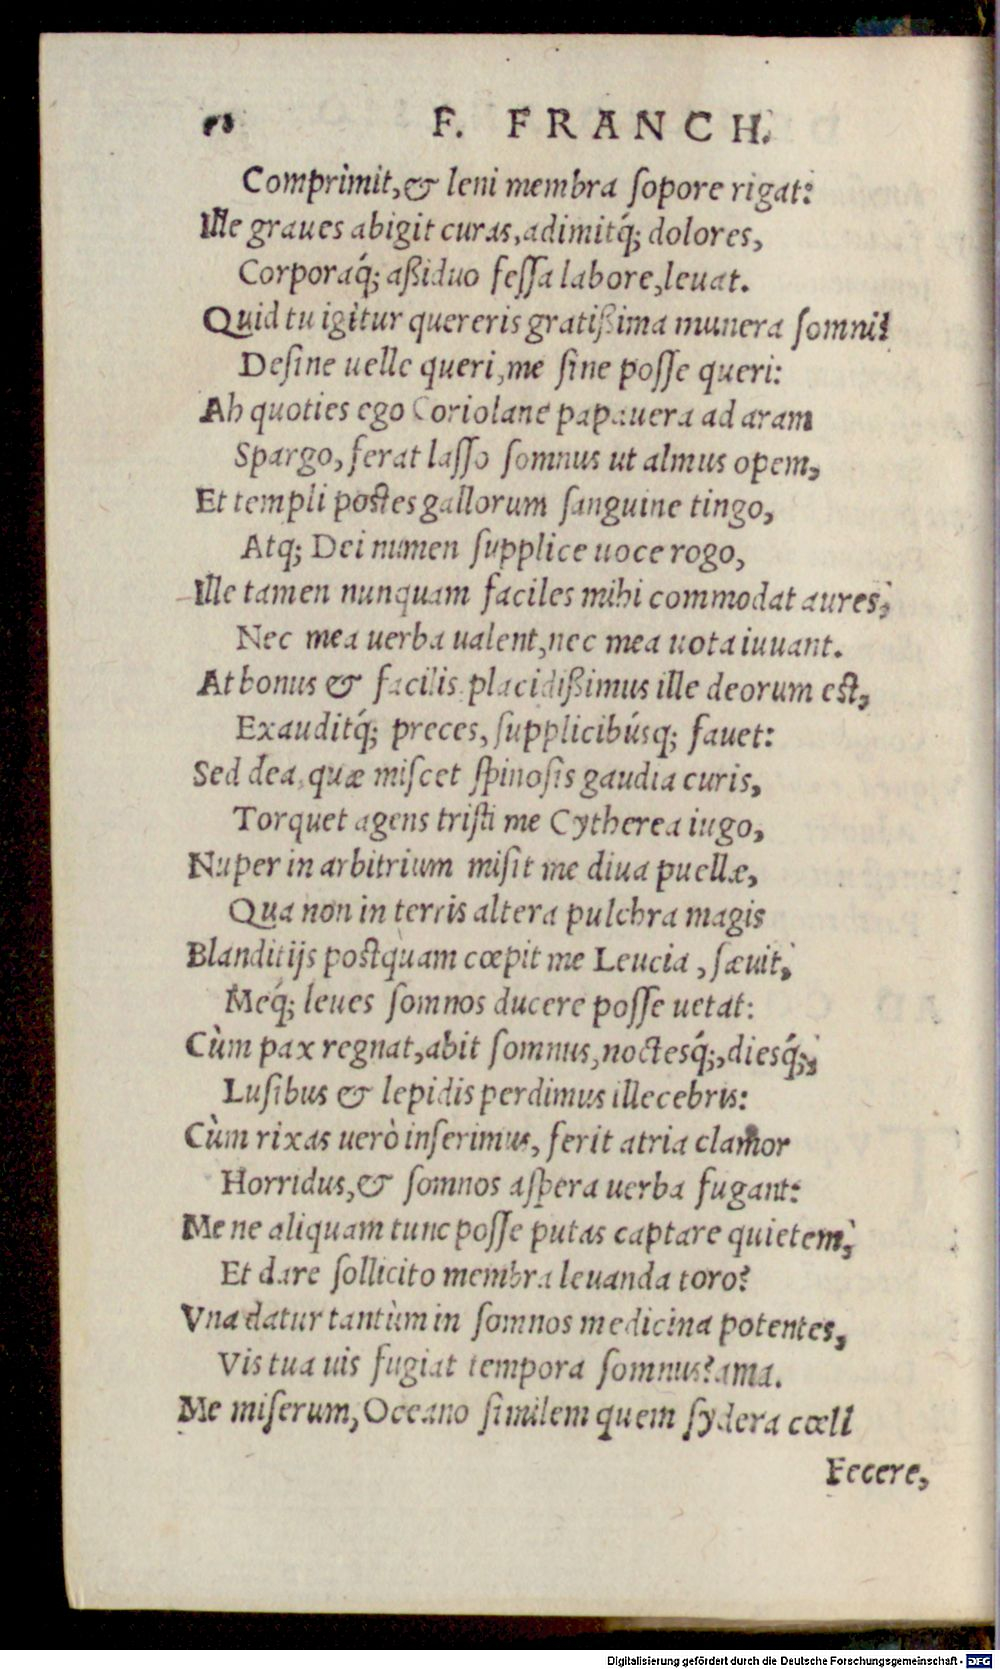 F. FRANCH.
Comprimit, & leni membra sopore rigat:
Ille graues abigit curas, adimitq́; dolores,
Corporaq́; aßiduo fessa labore, leuat.
Quid tu igitur quereris gratißima munera somni?
Desine uelle queri, me sine posse queri:
Ah quoties ego Coriolane papauera ad aram
Spargo, ferat lasso somnus ut almus opem,
Et templi postes gallorum sanguine tingo,
Atq; Dei numen supplice uoce rogo,
Ille tamen nunquam faciles mihi commodat aures,
Nec mea uerba ualent, nec mea uota iuuant.
At bonus & facilis placidißimus ille deorum est,
Exauditq́; preces, supplicibúsq; fauet:
Sed dea, quæ miscet spinosis gaudia curis,
Torquet agens tristi me Cytherea iugo,
Nuper in arbitrium misit me diua puellæ,
Qua non in terris altera pulchra magis
Blanditijs postquam cœpit me Leucia, sæuit,
Meq́; leues somnos ducere posse uetat:
Cùm pax regnat, abit somnus, noctesq́;, diesq́;,
Lusibus & lepidis perdimus illecebris:
Cùm rixas uerò inserimus, ferit atria clamor
Horridus, & somnos aspera uerba fugant:
Me ne aliquam tunc posse putas captare quietem,
Et dare sollicito membra leuanda toro?
Vna datur tantùm in somnos medicina potentes,
Vis tua uis fugiat tempora somnus? ama.
Me miserum, Oceano similem quem sydera cœli
Fecere,
Digitalisierung gefördert durch die Deutsche Forschungsgemeinschaft - DFG